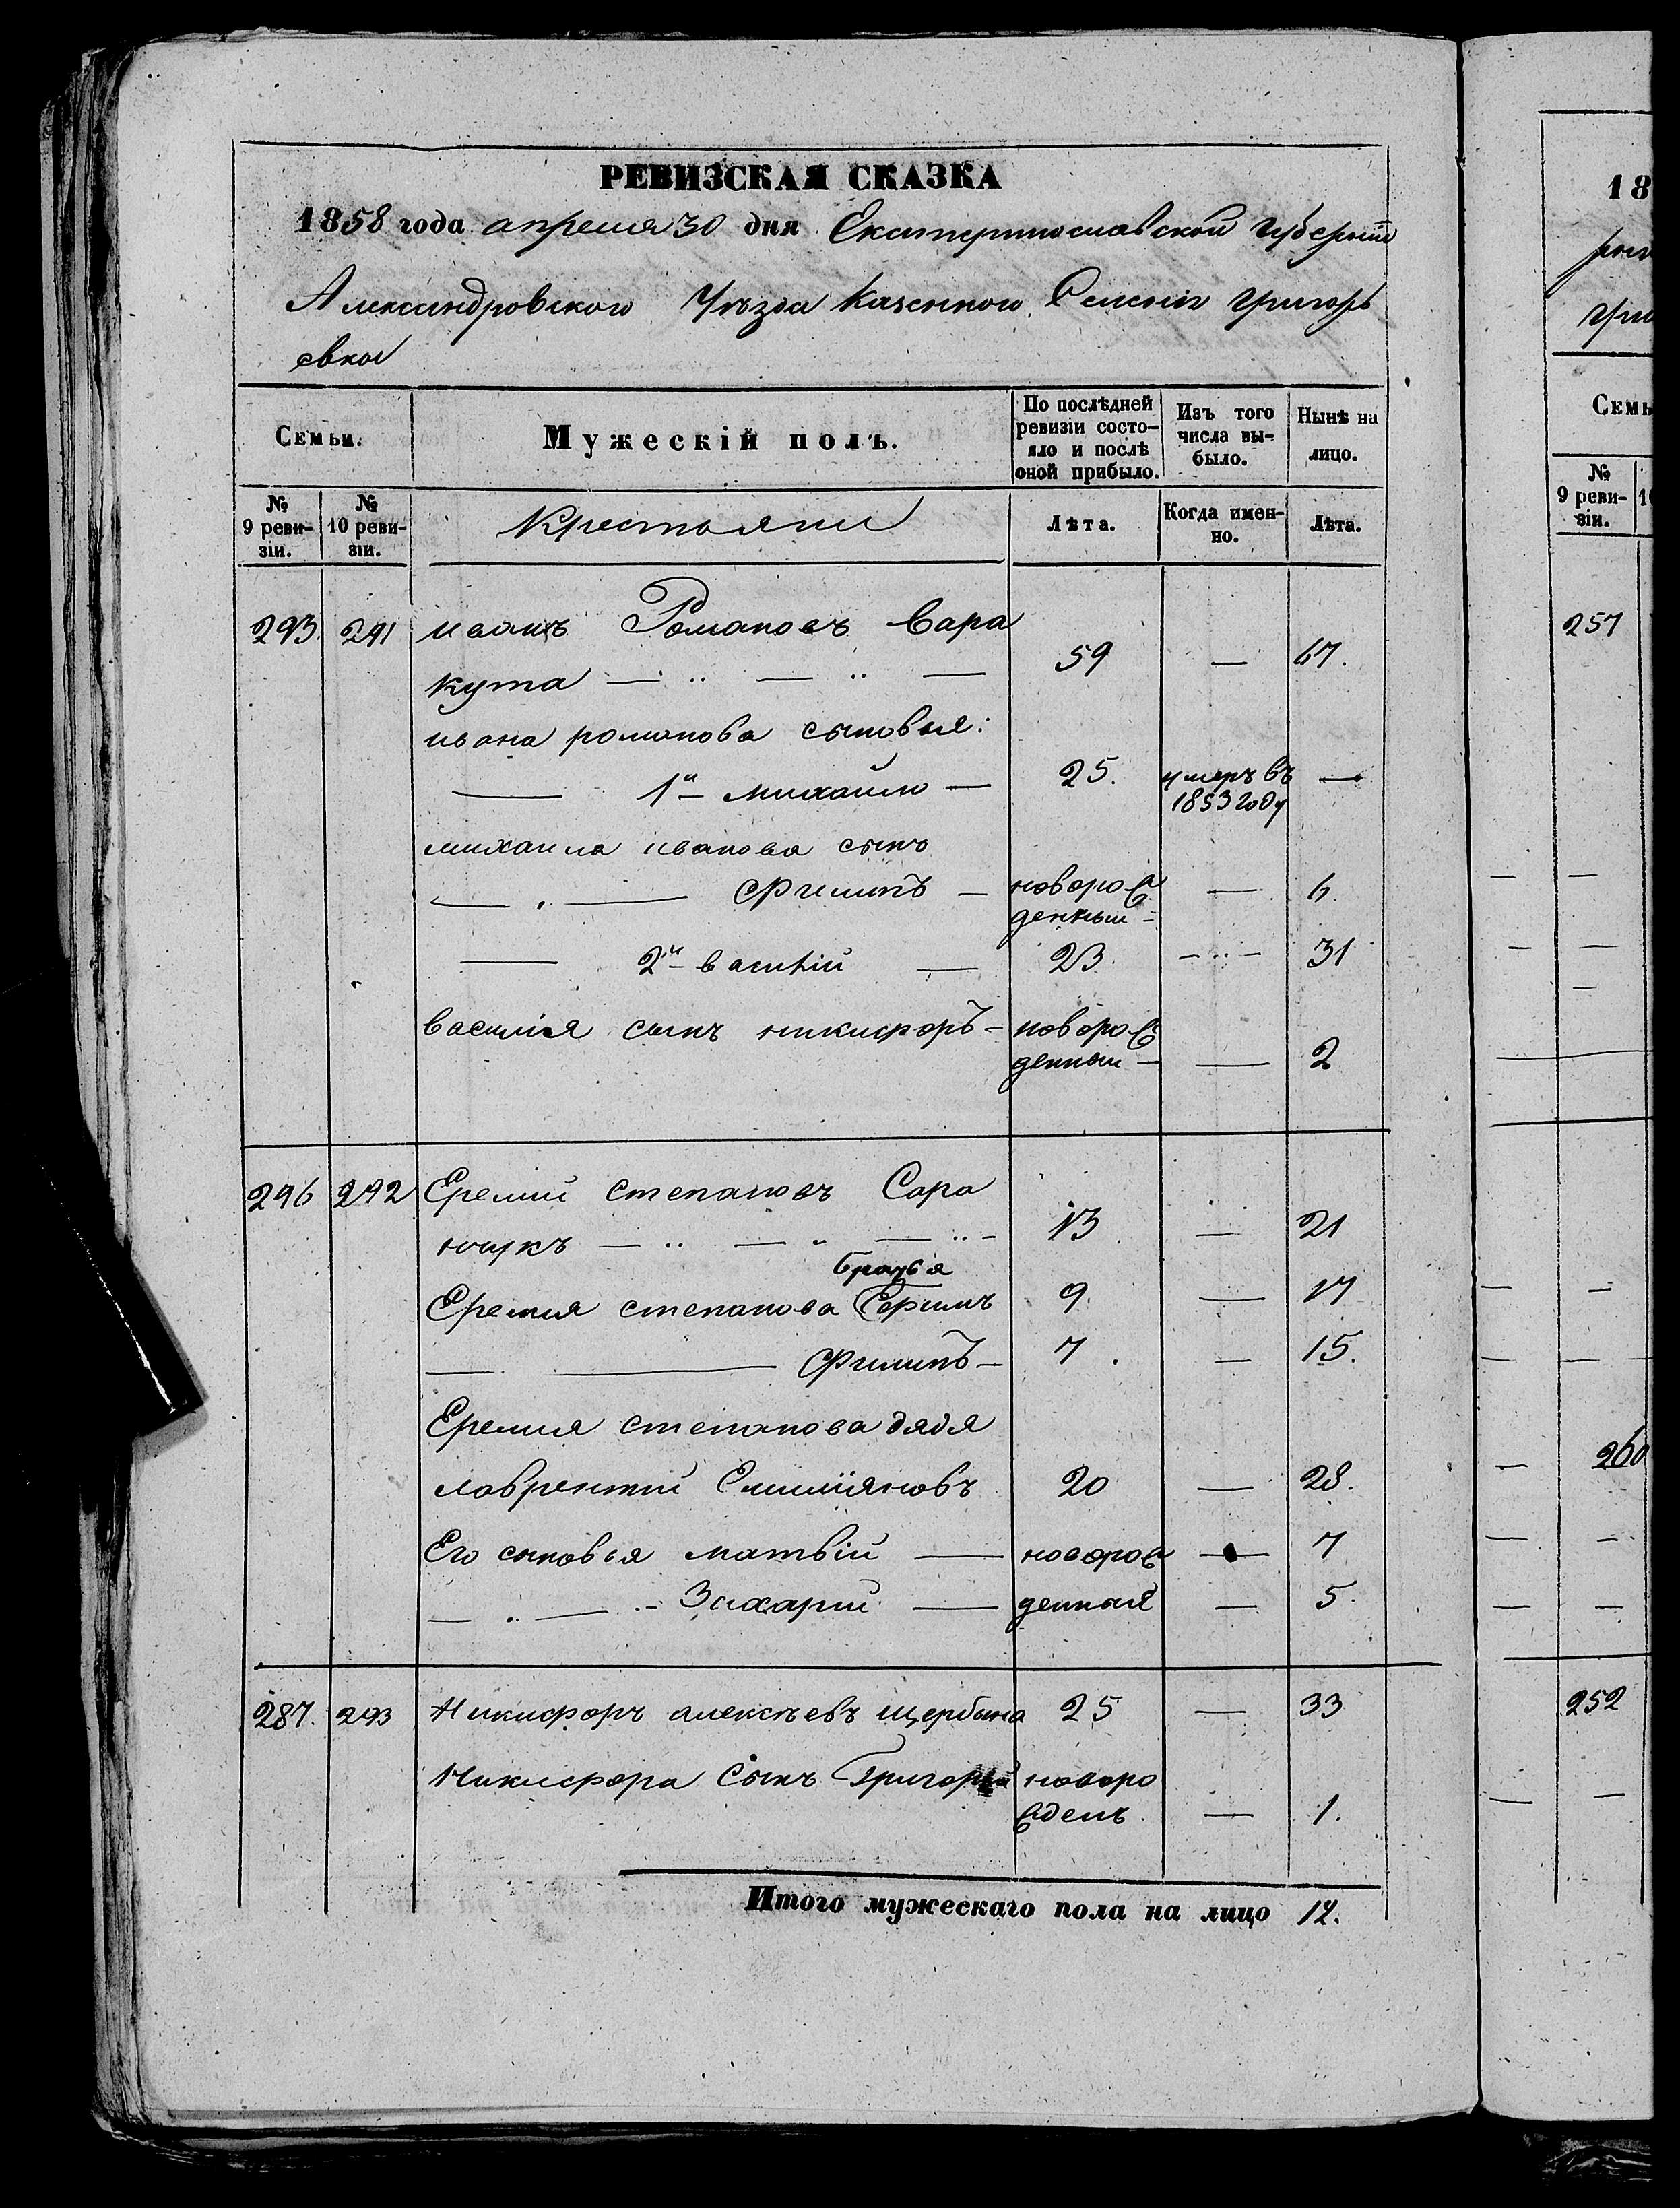 РЕВИЗСКАЯ СКАЗКА
1858 года апреля 30 дня Екатеринославской губернии
Александровского Уѣзда Казенного Селенія Григорь
евки
Семьи. Мужескій полъ. По послѣдней ревизіи состо- яло и послѣ оной прибыло. Изъ того числа вы- было. Нынѣ на лицо.
№ 9 реви- зіи. № 10 реви- зіи. Крестьяни Лѣта. Когда имен- но. Лѣта.
293. 291 иванъ Романовъ Вара
кута — 59 — 67.
ивана романова сыновья:
1й михайло — 25. умеръ въ 1853 году —
михаила иванова сынъ
Филипъ — новорож денный — 6.
2й василій — 23. — 31
василія сынъ никифоръ — новорож денный — 2
296 292 Еремий степановъ Сара
нчукъ — 13 — 21
братья
Еремия степанова Ефимъ 9. — 17
Филипъ — 7. — 15.
Еремия степанова дядя
лаврентий Емилияновъ 20 — 28.
Его сыновья матвій — новорож — 7
Захарий — денныя — 5.
287. 293 Никифоръ алексѣевъ щербына 25 — 33
Никифора сынъ Григорій новоро
жденъ — 1.
Итого мужескаго пола на лицо 12.
18
Семь
№ 9 реви- зіи.
257
260
252